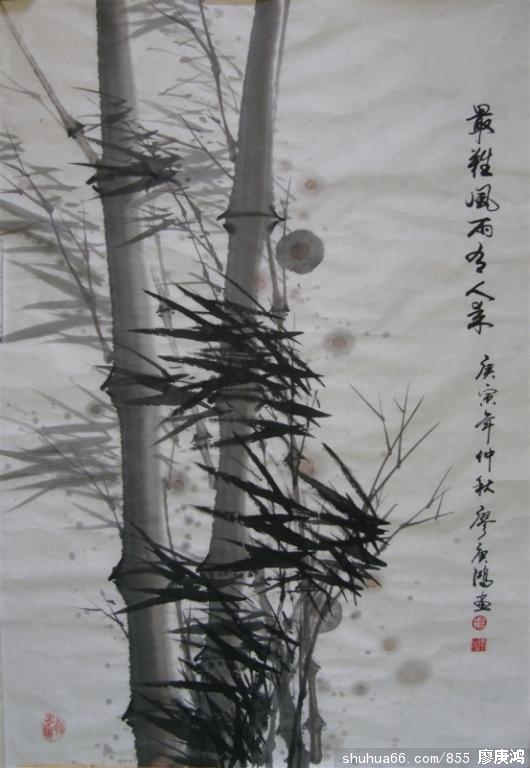 最難風雨有人来
庚寅年仲秋廖庚鴻畫
shuhua66.com/855 廖庚鸿